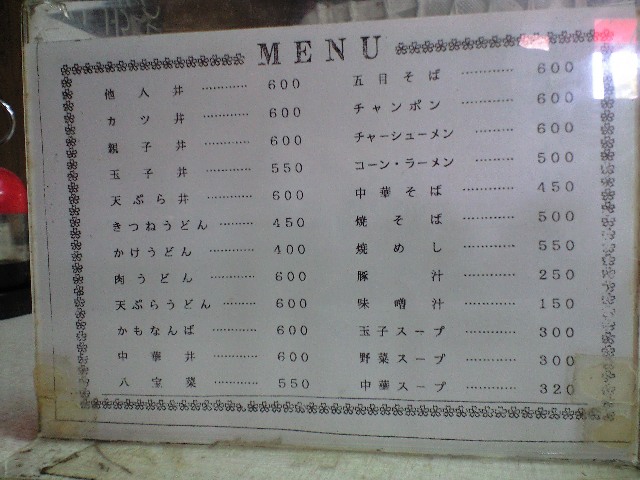 MENU
他人丼 ………… 600
カツ丼 ………… 600
親子丼 ………… 600
玉子丼 ………… 550
天ぷら丼 ………… 600
きつねうどん ……… 450
かけうどん ……… 400
肉うどん ………… 600
天ぷらうどん ……… 600
かもなんば ………… 600
中華丼 ………… 600
八宝菜 ………… 550
五目そば ………… 600
チャンポン ………… 600
チャーシューメン ……… 600
コーン・ラーメン ……… 500
中華そば ………… 450
焼そば ………… 500
焼めし ………… 550
豚汁 ………… 250
味噌汁 ………… 150
玉子スープ ………… 300
野菜スープ ………… 300
中華スープ ………… 320